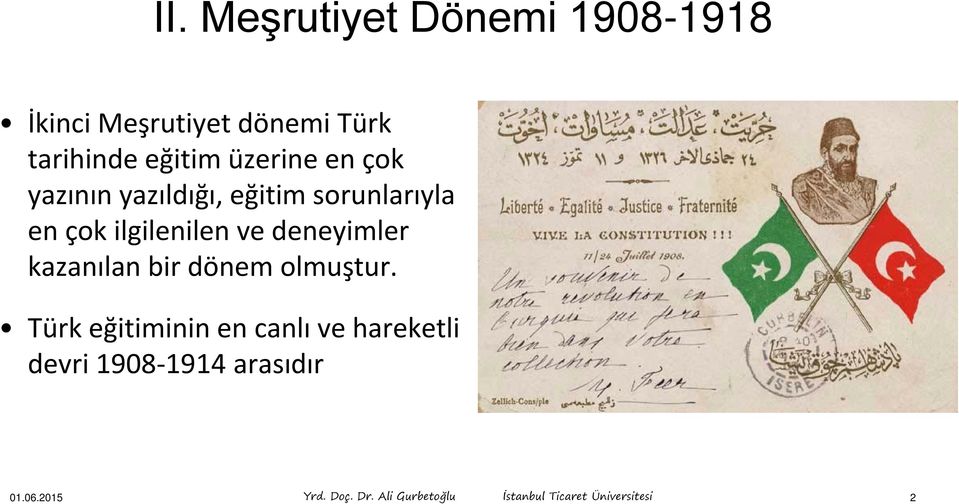 II. Meşrutiyet Dönemi 1908-1918
• İkinci Meşrutiyet dönemi Türk
tarihinde eğitim üzerine en çok
yazının yazıldığı, eğitim sorunlarıyla
en çok ilgilenilen ve deneyimler
kazanılan bir dönem olmuştur.
• Türk eğitiminin en canlı ve hareketli
devri 1908-1914 arasıdır
حریت، عدالت، مساوات، اخوت
٢٤ جماذی الاخر ١٣٢٦ و ١١ تموز ١٣٢٤
Liberté • Egalité • Justice • Fraternité
VIVE LA CONSTITUTION!!!
11/24 Juillet 1908.
Un souvenir de
notre revolution en
Turquie que fera
bien dans votre
collection.
Zellich-Cons/ple
پادشاهم چوق یشا
ISERE
01.06.2015 Yrd. Doç. Dr. Ali Gurbetoğlu İstanbul Ticaret Üniversitesi 2